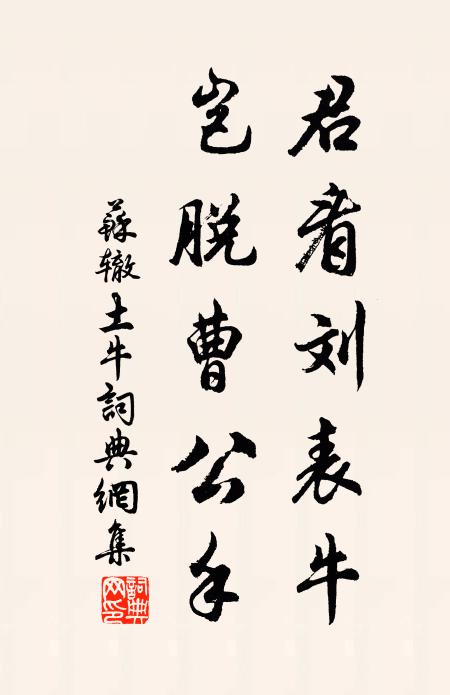 君看刘表牛
岂脱曹公手
蘇辙土牛詞典網集
詞典网印